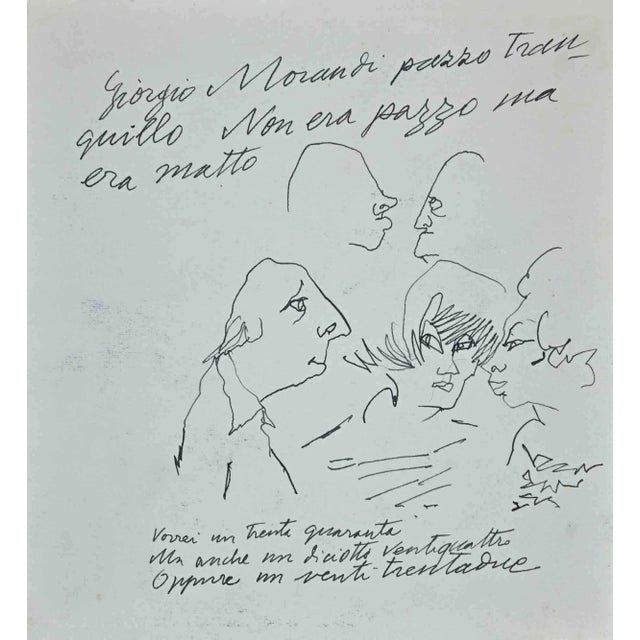 Giorgio Morandi pazzo tran-
quillo Non era pazzo ma
era matto
Vorrei un trenta quaranta
Ma anche un diciotto ventiquattro
Oppure un venti trentadue